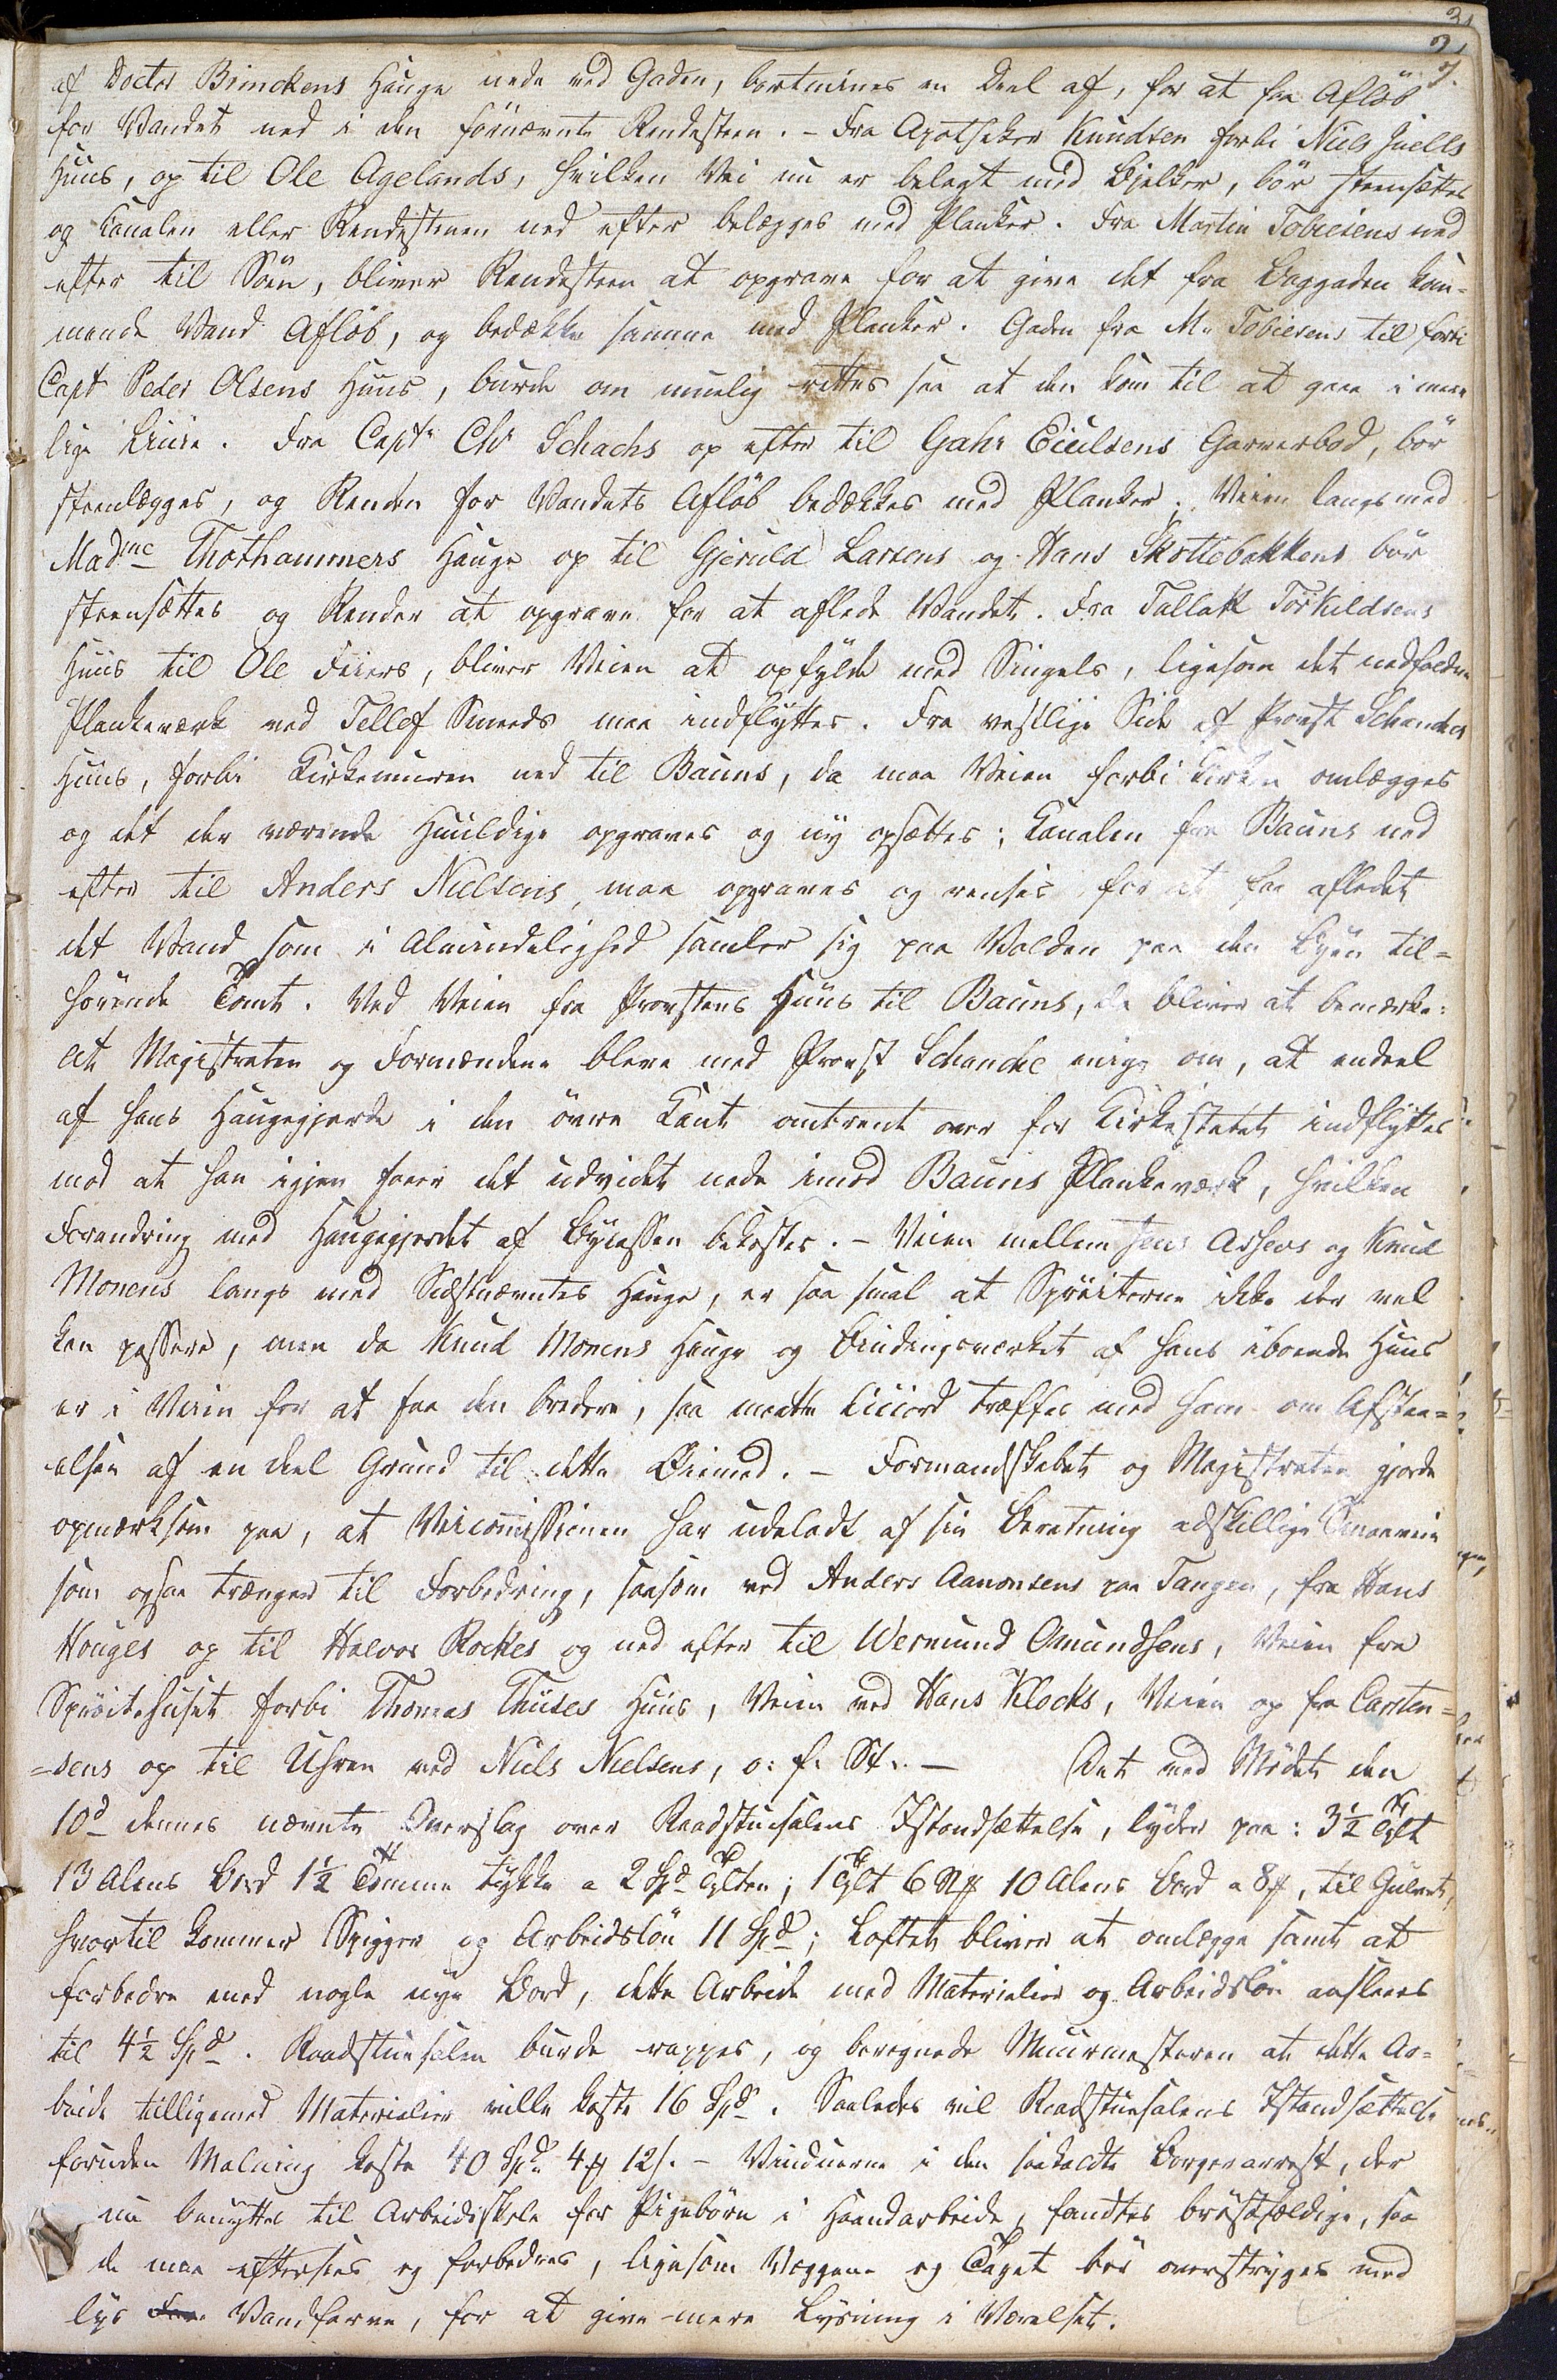 3.
af Doctor Brinckens Hauge nede ved Gaden, borttnines en Deel af, for at faa Afløb
for Vandet ned i den førnævnte Rendesteen. – Fra Apotheker Knudsen forbi Niels Juells
Huus, op til Ole Agelands, hvilken Vei nu er belagt med Bjelker, bör steensættes
og Canalen eller Rendestenen ned efter belægges med Planker. Fra Martin Tobiesens ned
efter til Söen, bliver Rendesteen at opgrave for at give det fra Baggaden kom-
mende Vand Afløb, og bedække samme med Planker. Gaden fra M. Tobiesens til forbi
Capt Peder Olsens Huus, burde om muelig rettes saa at den kom til at gaae i mere
lige Linie. Fra Capt. Chr Schachs op efter til Gahr Eiulsens Garverbod, bör
steenlægges, og Renden for Vandets Afløb bedækkes med Planker; Veien langs med
Madme Thothammers Hauge op til Gjeruld Larsens og Hans Skottebakkens bör
steensættes og Render at opgrave for at aflede Vandet. Fra Tallak Torkildsens
Huus til Ole Fiiers, bliver Veien at opfylde med Singels, ligesom det nedfaldne
Plankeværk ved Tellef Smeds maa indflyttes. Fra vestlige Side af Provst Schanches
Huus, forbi Kirkemuren ned til Bauns, da maa Veien forbi Kirken omlægges
og det der værende Huuldige opgraves og ny opsættes; Canalen fra Bauns ned
efter til Anders Nielsens, maa opgraves og renses for at faa afledet
det Vand som i Almindelighed samler sig paa Volden paa den Byen til-
hørende Tomt. Ved Veien fra Provstens Huus til Bauns, da bliver at bemærke:
at Magistraten og Formændene bleve med Provst Schanche enige om, at endeel
af hans Haugegjerde i den övre Kant omtrent over for Kirkestætet indflyttes
mod at han igjen faaer det udvidet nede imod Bauns Plankeværk, hvilken
Forandring med Haugegjerdet af Bycassen bekostes. – Veien mellem Jens Assevs og Knud
Monens langs med Sidstnævntes Hauge, er saa smal at Sprøiterne ikke der vel
kan passere, men da Knud Monens Hauge og Bindingsværket af hans iboende Huus
er i Veien for at faa den bredere, saa maatte Accord træffes med ham om Afstaa-
elsen af en deel Grund til dette Öiemed. – Formandskabet og Magistraten gjorde
opmærksom paa, at Veicommissionen har udeladt af sin Beretning adskillige Smaaveie
som ogsaa trænger til Forbedring, saasom ved Anders Aanonsens paa Tangen, fra Hans
Houges op til Halvor Rockes og ned efter til Wermund Omundsens, Veien fra
Sprøitehuset forbi Thomas Thuses Huus, Veien ved Hans Klocks, Veien op fra Carsten-
=sens op til Uhren ved Niels Nielsens, o: f: St. – Det ved Mödet den
10d dennes nævnte Overslag over Raadstuesalens Istandsættelse, lyder paa: 3½ Tylt
13 Alens Bord 1½ Tomme tykke a 2 Spd Tylten; 1 Tylt 6 Stk 10 Alens Bord a 8 s, til Gulvet,
hvortil kommer Spigger og Arbeidslön 11 Spd; Loftet bliver at omlægge samt at
forbedre med nogle nye Bord, dette Arbeide med Materialier og Arbeidslön ansleaes
til 4½ Spd. Raadstuesalen burde rappes, og beregnede Muurmesteren at dette Ar-
beide tilligemed Materialier ville koste 16 Spd. Saaledes vil Raadstuesalens Istandsættelse
foruden Malning koste 40 Spd 4 ƒ 12 s. – Vinduerne i den saakaldte Borgerarrest, der
nu benyttes til Arbeidsskole for Pigebörn i Haandarbeide, fandtes bröstfældige, saa
de maa eftersees og forbedres, ligesom Væggene og Taget bör overstryges med
lys Vandfarve, for at give mere Lysning i Værelset.